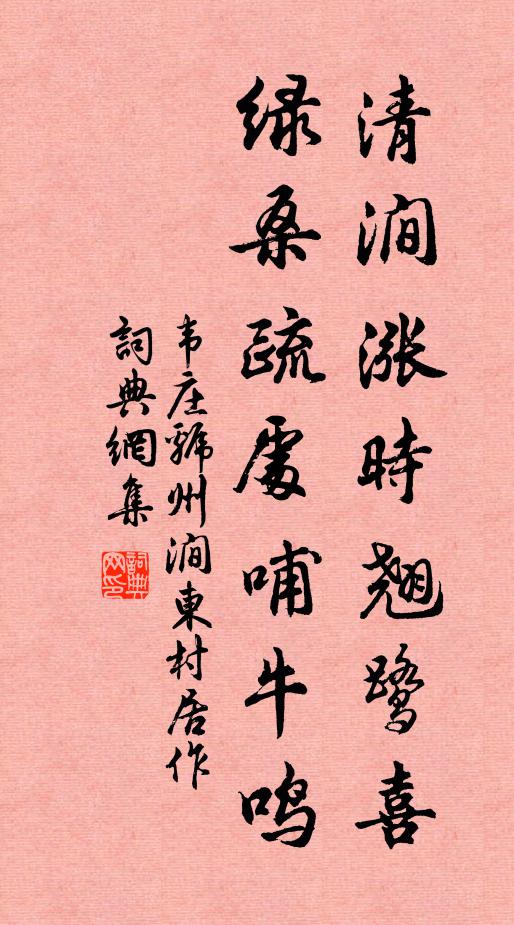 清涧涨時翘鹭喜
绿桑疏處哺牛鸣
韦庄虢州涧東村居作
詞典網集
詞典网印